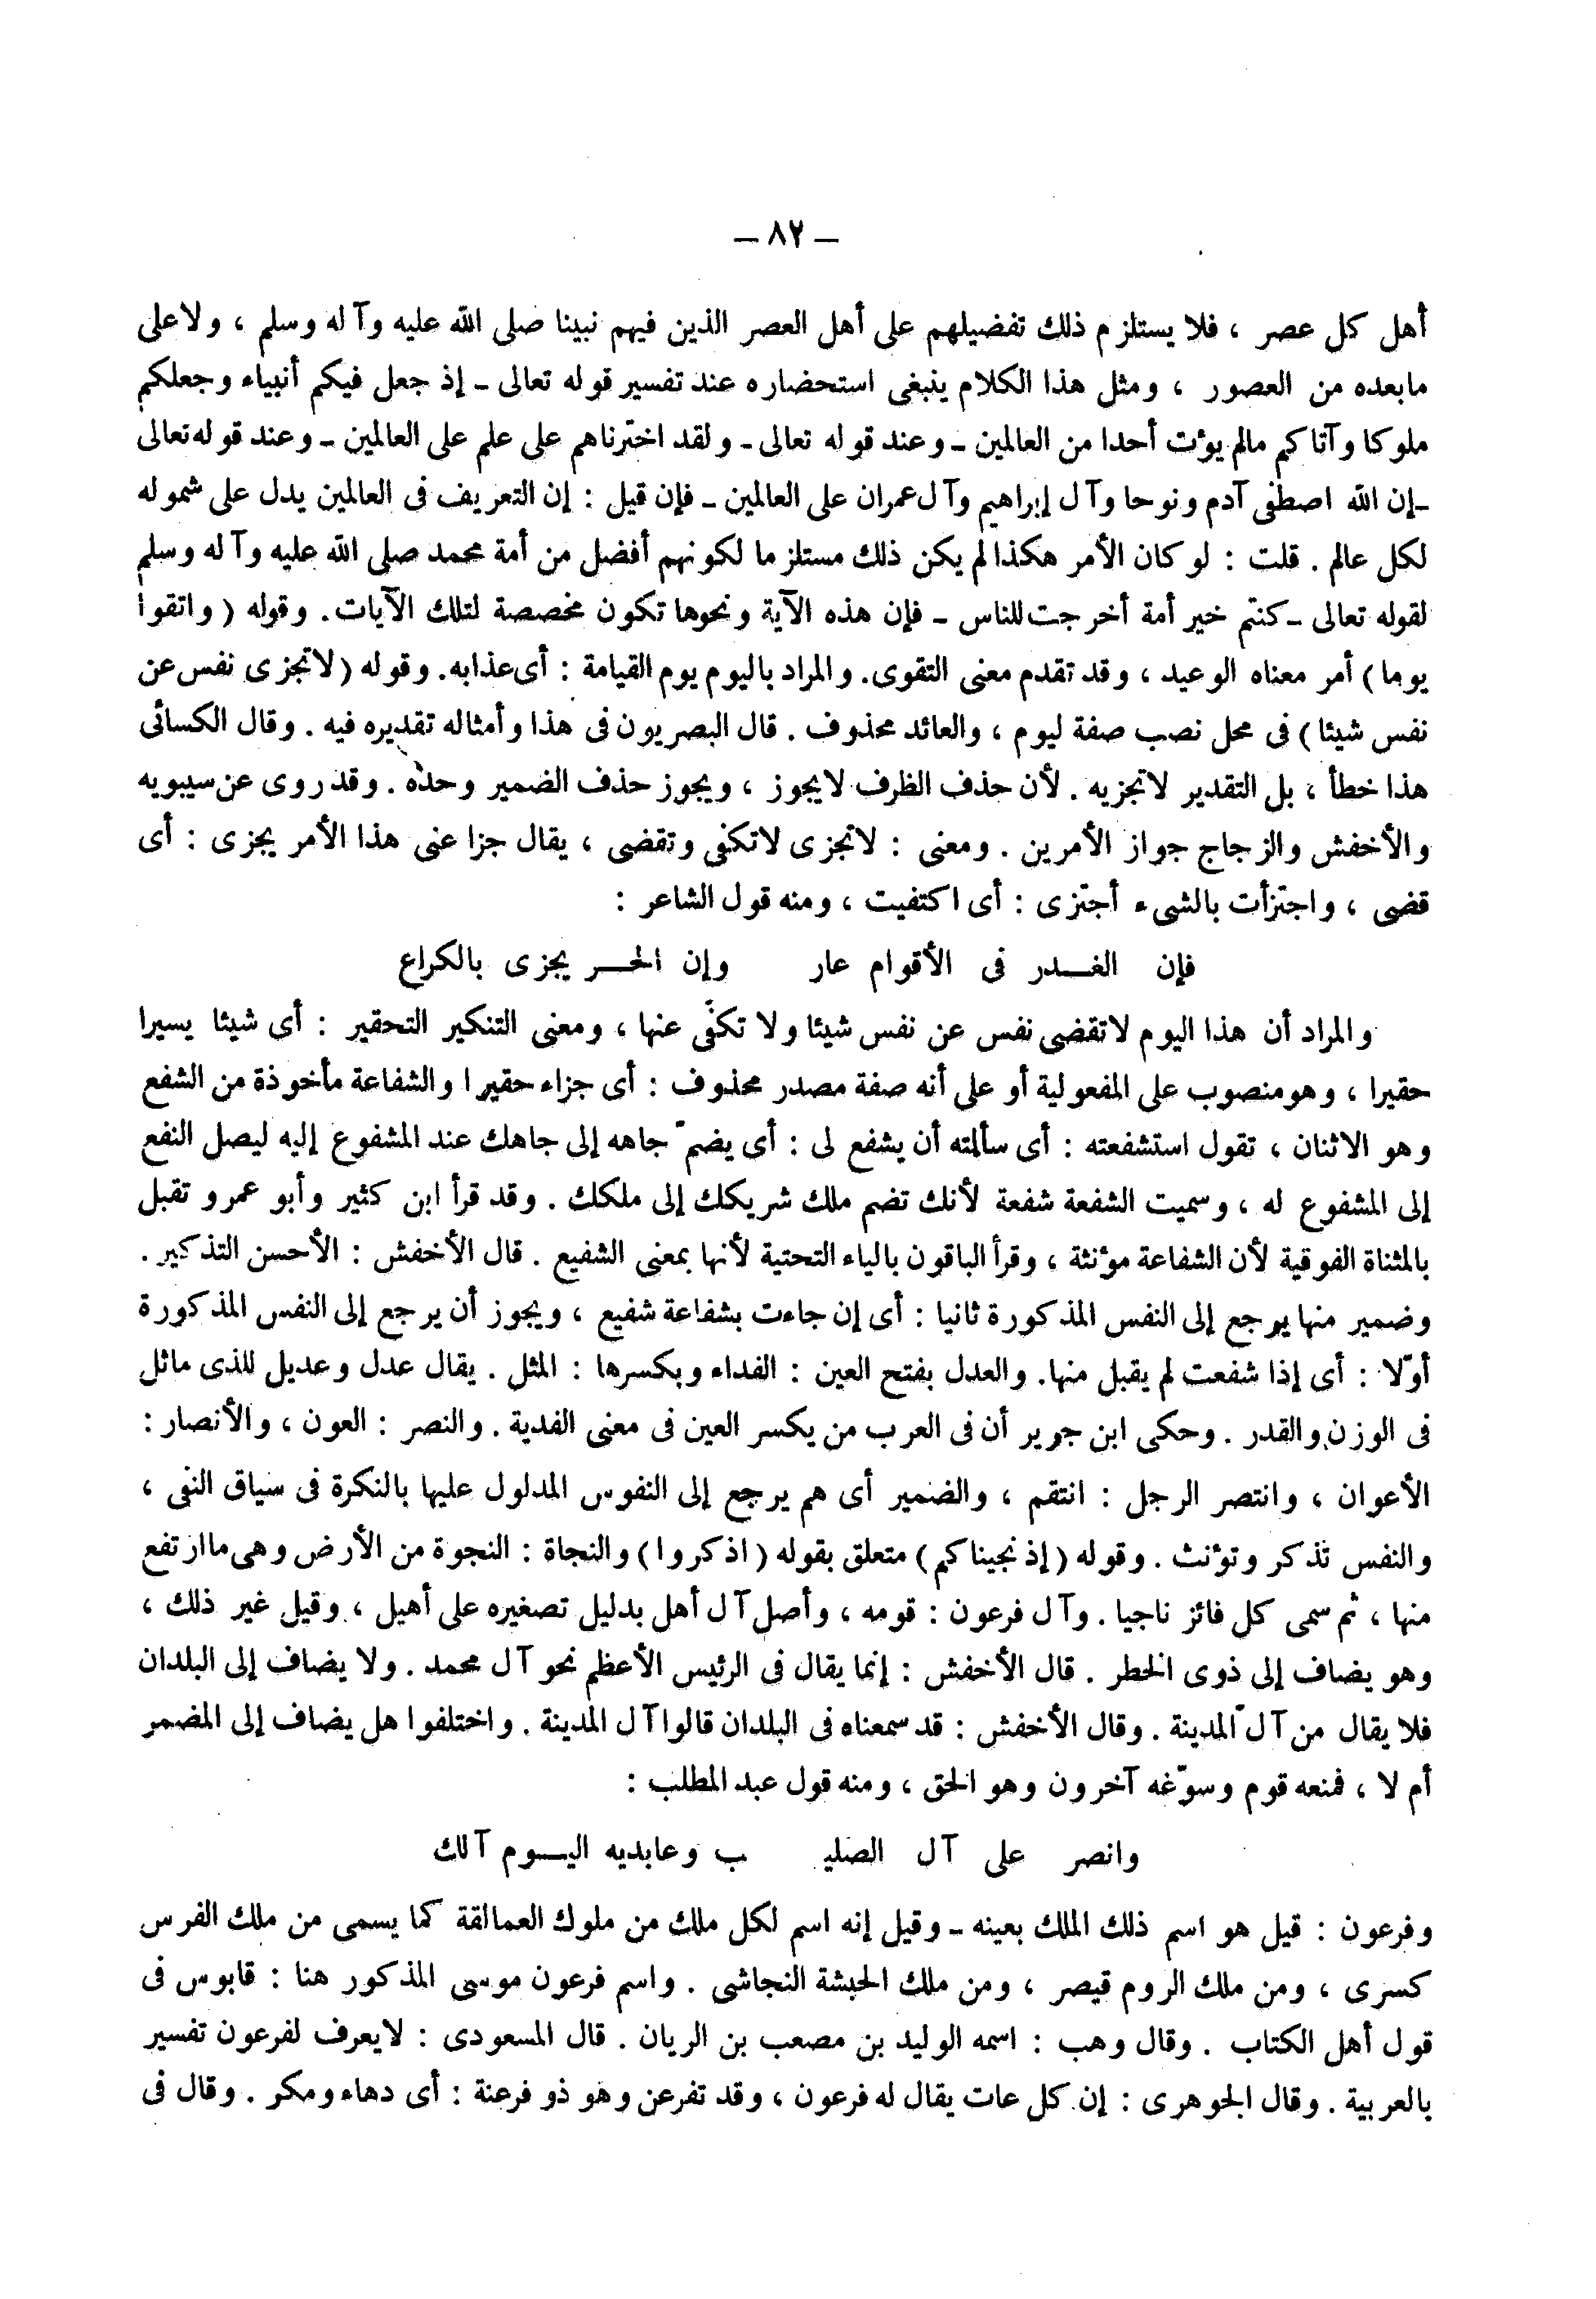 – ٨٢ –
أهل كل عصر ، فلا يستلزم ذلك تفضيلهم على أهل العصر الذين فيهم نبينا صلى الله عليه وآله وسلم ، ولا على
مابعده من العصور ، ومثل هذا الكلام ينبغى استحضاره عند تفسير قوله تعالى – إذ جعل فيكم أنبياء وجعلكم
ملوكا وآتاكم مالم يؤت أحدا من العالمين – وعند قوله تعالى – ولقد اخترناهم على علم على العالمين – وعند قوله تعالى
– إن الله اصطفى آدم ونوحا وآل إبراهيم وآل عمران على العالمين – فإن قيل : إن التعريف فى العالمين يدل على شموله
لكل عالم . قلت : لو كان الأمر هكذا لم يكن ذلك مستلزما لكونهم أفضل من أمة محمد صلى الله عليه وآله وسلم
لقوله تعالى – كنتم خير أمة أخرجت للناس – فإن هذه الآية ونحوها تكون مخصصة لتلك الآيات . وقوله ( واتقوا
يوما ) أمر معناه الوعيد ، وقد تقدم معنى التقوى . والمراد باليوم يوم القيامة : أى عذابه . وقوله ( لاتجزى نفس عن
نفس شيئا ) فى محل نصب صفة ليوم ، والعائد محذوف . قال البصريون فى هذا وأمثاله تقديره فيه . وقال الكسائى
هذا خطأ ، بل التقدير لاتجزيه . لأن حذف الظرف لايجوز ، ويجوز حذف الضمير وحده . وقد روى عن سيبويه
والأخفش والزجاج جواز الأمرين . ومعنى : لاتجزى لاتكفى وتقضى ، يقال جزا عنى هذا الأمر يجزى : أى
قضى ، واجتزأت بالشىء أجتزى : أى اكتفيت ، ومنه قول الشاعر :
فإن الغـدر فى الأقوام عار وإن الحـر يجزى بالكراع
والمراد أن هذا اليوم لاتقضى نفس عن نفس شيئا ولا تكفى عنها ، ومعنى التنكير التحقير : أى شيئا يسيرا
حقيرا ، وهو منصوب على المفعولية أو على أنه صفة مصدر محذوف : أى جزاء حقيرا والشفاعة مأخوذة من الشفع
وهو الاثنان ، تقول استشفعته : أى سألته أن يشفع لى : أى يضمّ جاهه إلى جاهك عند المشفوع إليه ليصل النفع
إلى المشفوع له ، وسميت الشفعة شفعة لأنك تضم ملك شريكك إلى ملكك . وقد قرأ ابن كثير وأبو عمرو تقبل
بالمثناة الفوقية لأن الشفاعة مؤنثة ، وقرأ الباقون بالياء التحتية لأنها بمعنى الشفيع . قال الأخفش : الأحسن التذكير .
وضمير منها يرجع إلى النفس المذكورة ثانيا : أى إن جاءت بشفاعة شفيع ، ويجوز أن يرجع إلى النفس المذكورة
أوّلا : أى إذا شفعت لم يقبل منها . والعدل بفتح العين : الفداء وبكسرها : المثل . يقال عدل وعديل للذى ماثل
فى الوزن والقدر . وحكى ابن جرير أن فى العرب من يكسر العين فى معنى الفدية . والنصر : العون ، والأنصار :
الأعوان ، وانتصر الرجل : انتقم ، والضمير أى هم يرجع إلى النفوس المدلول عليها بالنكرة فى سياق النفى ،
والنفس تذكر وتؤنث . وقوله ( إذ نجيناكم ) متعلق بقوله ( اذكروا ) والنجاة : النجوة من الأرض وهى ما ارتفع
منها ، ثم سمى كل فائز ناجيا . وآل فرعون : قومه ، وأصل آل أهل بدليل تصغيره على أهيل ، وقيل غير ذلك ،
وهو يضاف إلى ذوى الخطر . قال الأخفش : إنما يقال فى الرئيس الأعظم نحو آل محمد . ولا يضاف إلى البلدان
فلا يقال من آل المدينة . وقال الأخفش : قد سمعناه فى البلدان قالوا آل المدينة . واختلفوا هل يضاف إلى المضمر
أم لا ، فمنعه قوم وسوّغه آخرون وهو الحق ، ومنه قول عبد المطلب :
وانصر على آل الصليـ ـب وعابديه اليـوم آلك
وفرعون : قيل هو اسم ذلك الملك بعينه – وقيل إنه اسم لكل ملك من ملوك العمالقة كما يسمى من ملك الفرس
كسرى ، ومن ملك الروم قيصر ، ومن ملك الحبشة النجاشى . واسم فرعون موسى المذكور هنا : قابوس فى
قول أهل الكتاب . وقال وهب : اسمه الوليد بن مصعب بن الريان . قال المسعودى : لايعرف لفرعون تفسير
بالعربية . وقال الجوهرى : إن كل عات يقال له فرعون ، وقد تفرعن وهو ذو فرعنة : أى دهاء ومكر . وقال فى